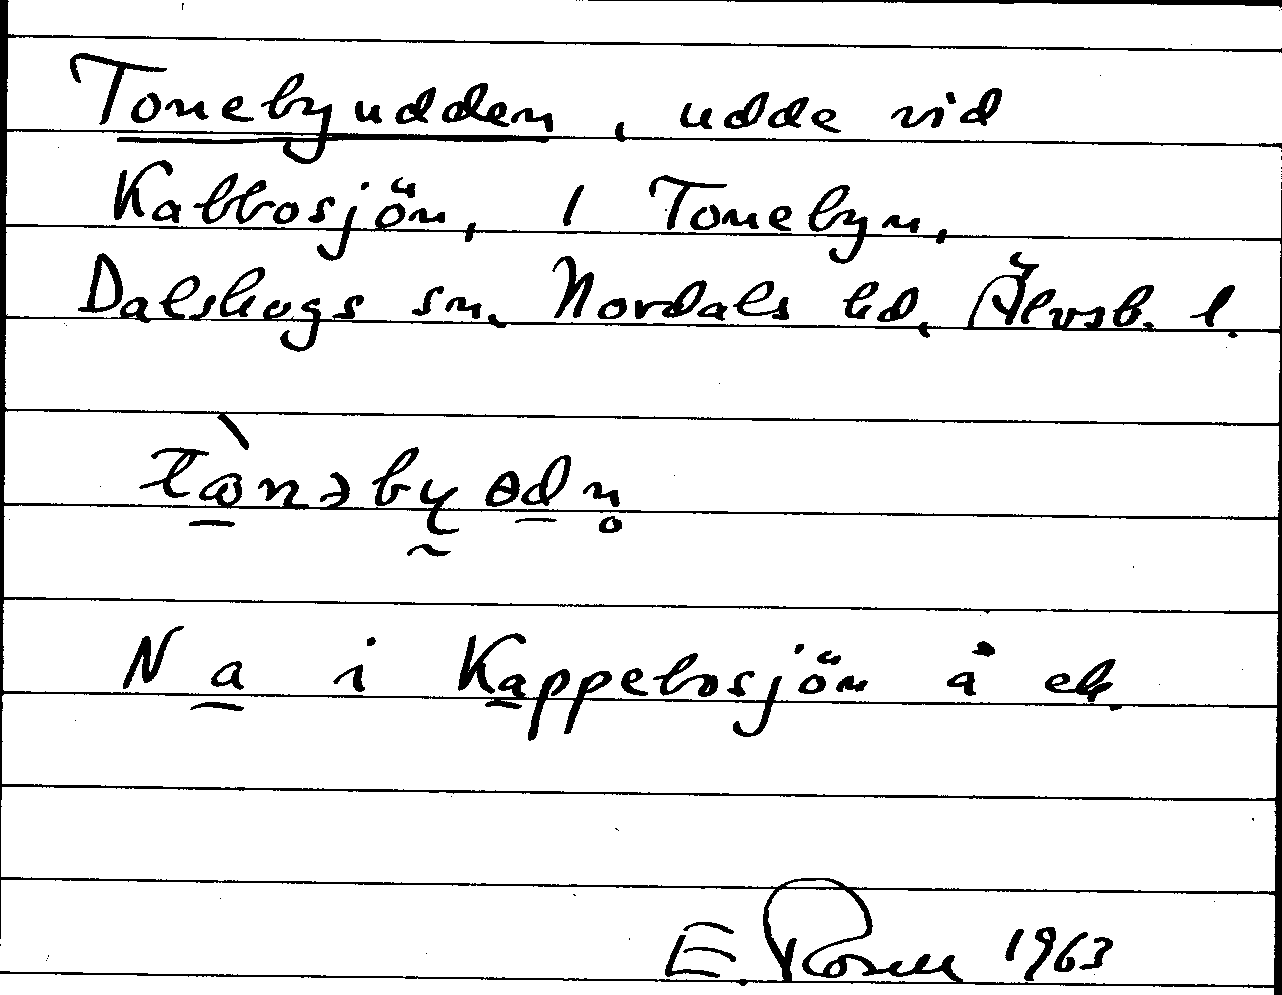 Tonebyudden, udde vid
Kabbosjön, 1 Tonebyn,
Dalskogs sn, Nordals hd, Älvsb. l.
tὼnəbyɵdn̥
N a i Kappebosjön å ek.
E. Rosell 1963